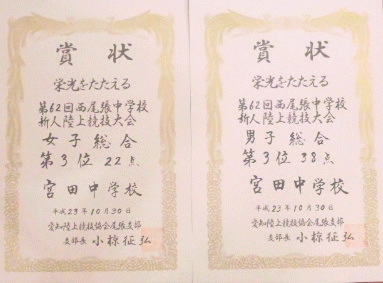 賞状
栄光をたたえる
第62回西尾張中学校
新人陸上競技大会
女子総合
第3位 22点
宮田中学校
平成23年10月30日
愛知陸上競技協会尾張支部
支部長 小椋征弘
賞状
栄光をたたえる
第62回西尾張中学校
新人陸上競技大会
男子総合
第3位 38点
宮田中学校
平成23年10月30日
愛知陸上競技協会尾張支部
支部長 小椋征弘